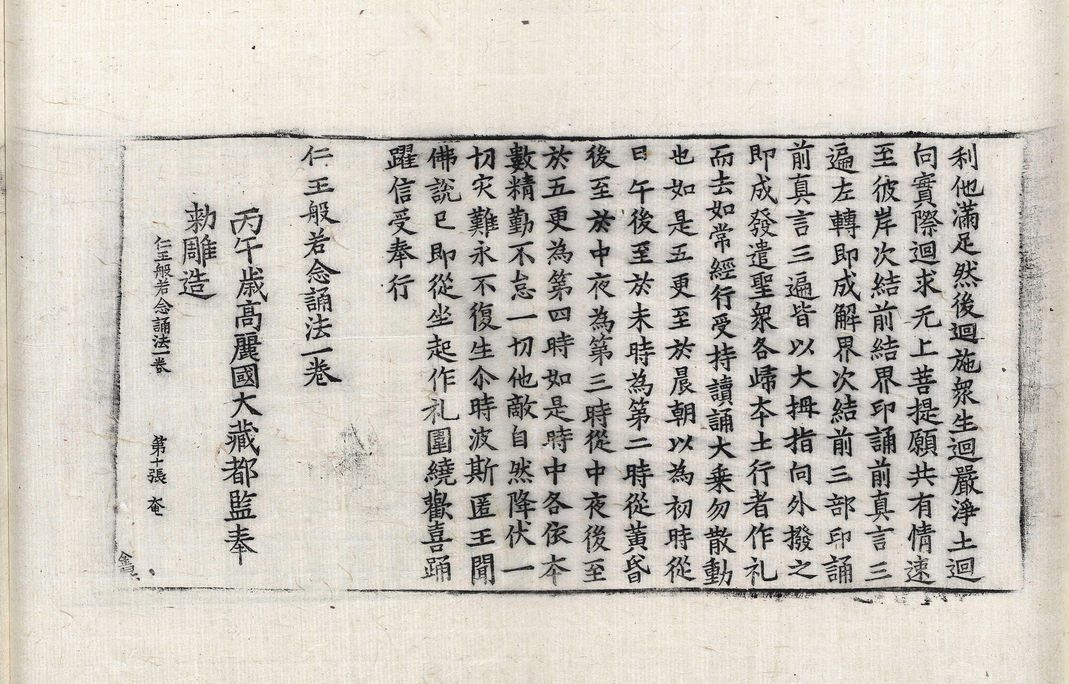 利他滿足然後迴施衆生迴嚴淨土迴
向實際迴求无上菩提願共有情速
至彼岸次結前結界印誦前真言三
遍左轉即成解界次結前三部印誦
前真言三遍皆以大拇指向外撥之
即成發遣聖衆各歸夲土行者作礼
而去如常經行受持讀誦大乗勿散動
也如是五更至於晨朝以為初時從
日午後至於未時為第二時從黃昏
後至於中夜為第三時從中夜後至
於五更為第四時如是時中各依夲
數精勤不忘一切他敵自然降伏一
切灾難永不復生尒時波斯匿王聞
佛說已即從坐起作礼圍繞歡喜踊
躍信受奉行
仁王般若念誦法一卷
丙午歲高麗國大藏都監奉
勑雕造
仁王般若念誦法一卷 第十張 奄